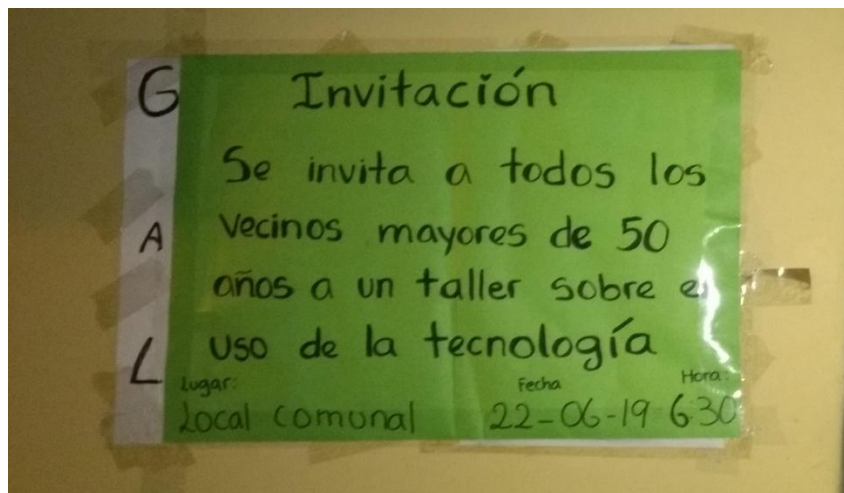 G
A
L
Invitación
Se invita a todos los
vecinos mayores de 50
años a un taller sobre el
uso de la tecnología
Lugar: Fecha Hora:
Local comunal 22-06-19 6:30